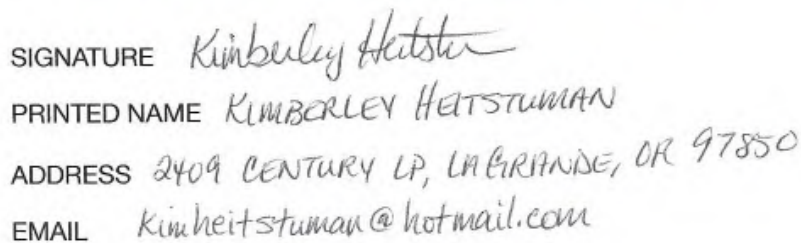 SIGNATURE Kimberley Heitstu
PRINTED NAME KIMBERLEY HEITSTUMAN
ADDRESS 2409 CENTURY LP, LA GRANDE, OR 97850
EMAIL kimheitstuman@hotmail.com